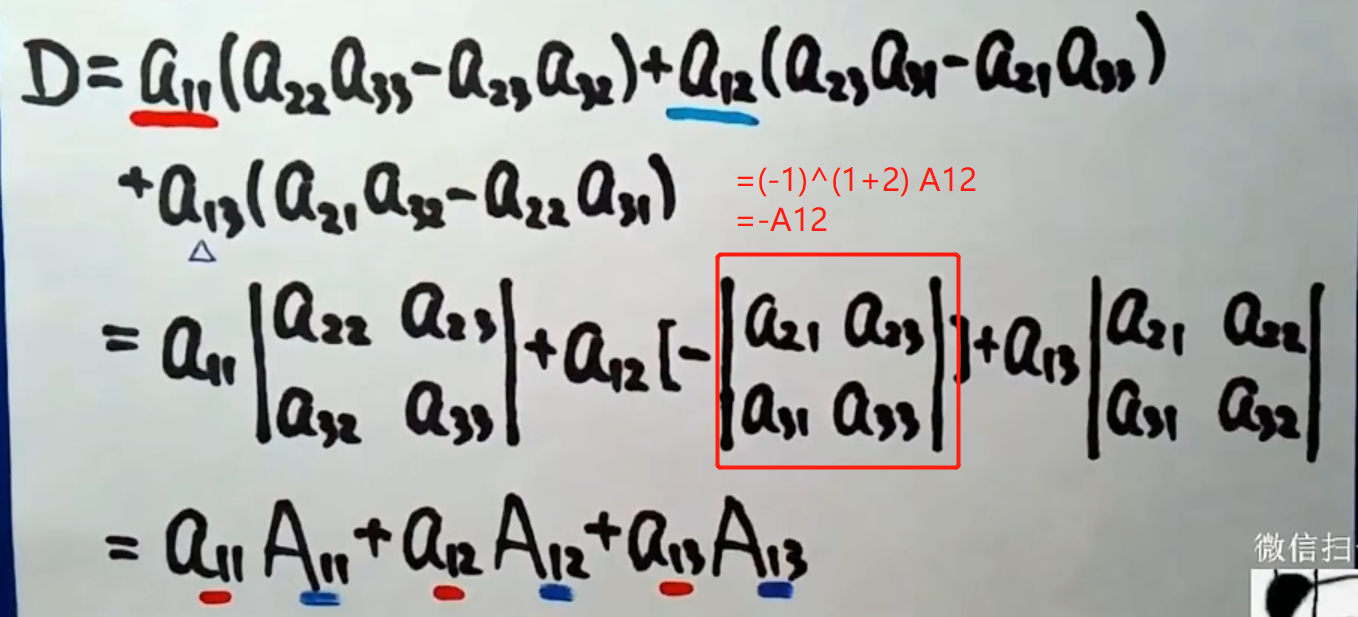 D=a₁₁(a₂₂a₃₃-a₂₃a₃₂)+a₁₂(a₂₃a₃₁-a₂₁a₃₃)
+a₁₃(a₂₁a₃₂-a₂₂a₃₁)
=(-1)^(1+2) A12
=-A12
=a₁₁|a₂₂ a₂₃|+a₁₂[-|a₂₁ a₂₃|]+a₁₃|a₂₁ a₂₂|
|a₃₂ a₃₃| |a₃₁ a₃₃| |a₃₁ a₃₂|
=a₁₁A₁₁+a₁₂A₁₂+a₁₃A₁₃
微信扫